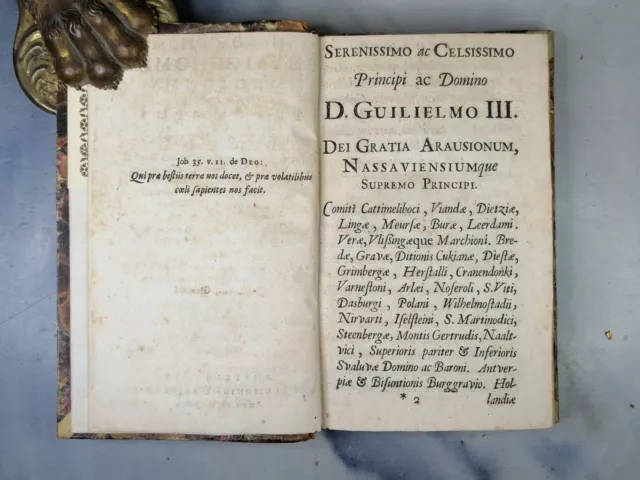 Job 35. v. 11. de DEO:
Qui præ bestiis terræ nos docet, & præ volatilibus
cœli sapientes nos facit.
SERENISSIMO ac CELSISSIMO
Principi ac Domino
D. GUILIELMO III.
DEI GRATIA ARAUSIONUM,
NASSAVIENSIUMque
SUPREMO PRINCIPI.
Comiti Cattimeliboci, Viandæ, Dietziæ,
Lingæ, Meursæ, Buræ, Leerdami.
Veræ, Vlißingæque Marchioni. Bre-
dæ, Gravæ, Ditionis Cukianæ, Diestæ,
Grimbergæ, Herstalli, Cranendonki,
Varnestoni, Arlæi, Noseroli, S. Viti,
Dasburgi, Polani, Wilhelmostadii,
Nirvarti, Iselsteini, S. Martinodici,
Steenbergæ, Montis Gertrudis, Naalt-
vici, Superioris pariter & Inferioris
Svaluvæ Domino ac Baroni. Antver-
piæ & Bisuntionis Burggravio. Hol-
* 2 landiæ